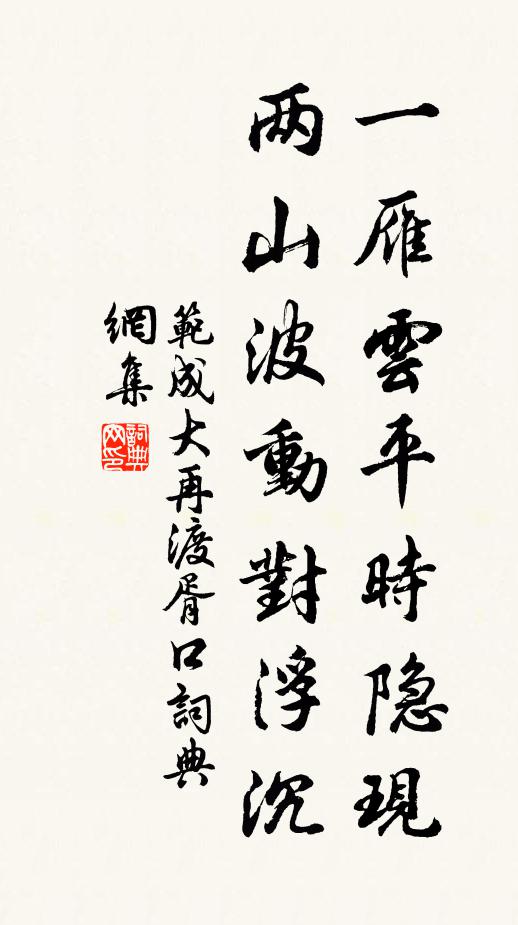 一雁雲平時隐現
两山波動對浮沉
範成大再渡胥口詞典
網集
詞典
网印